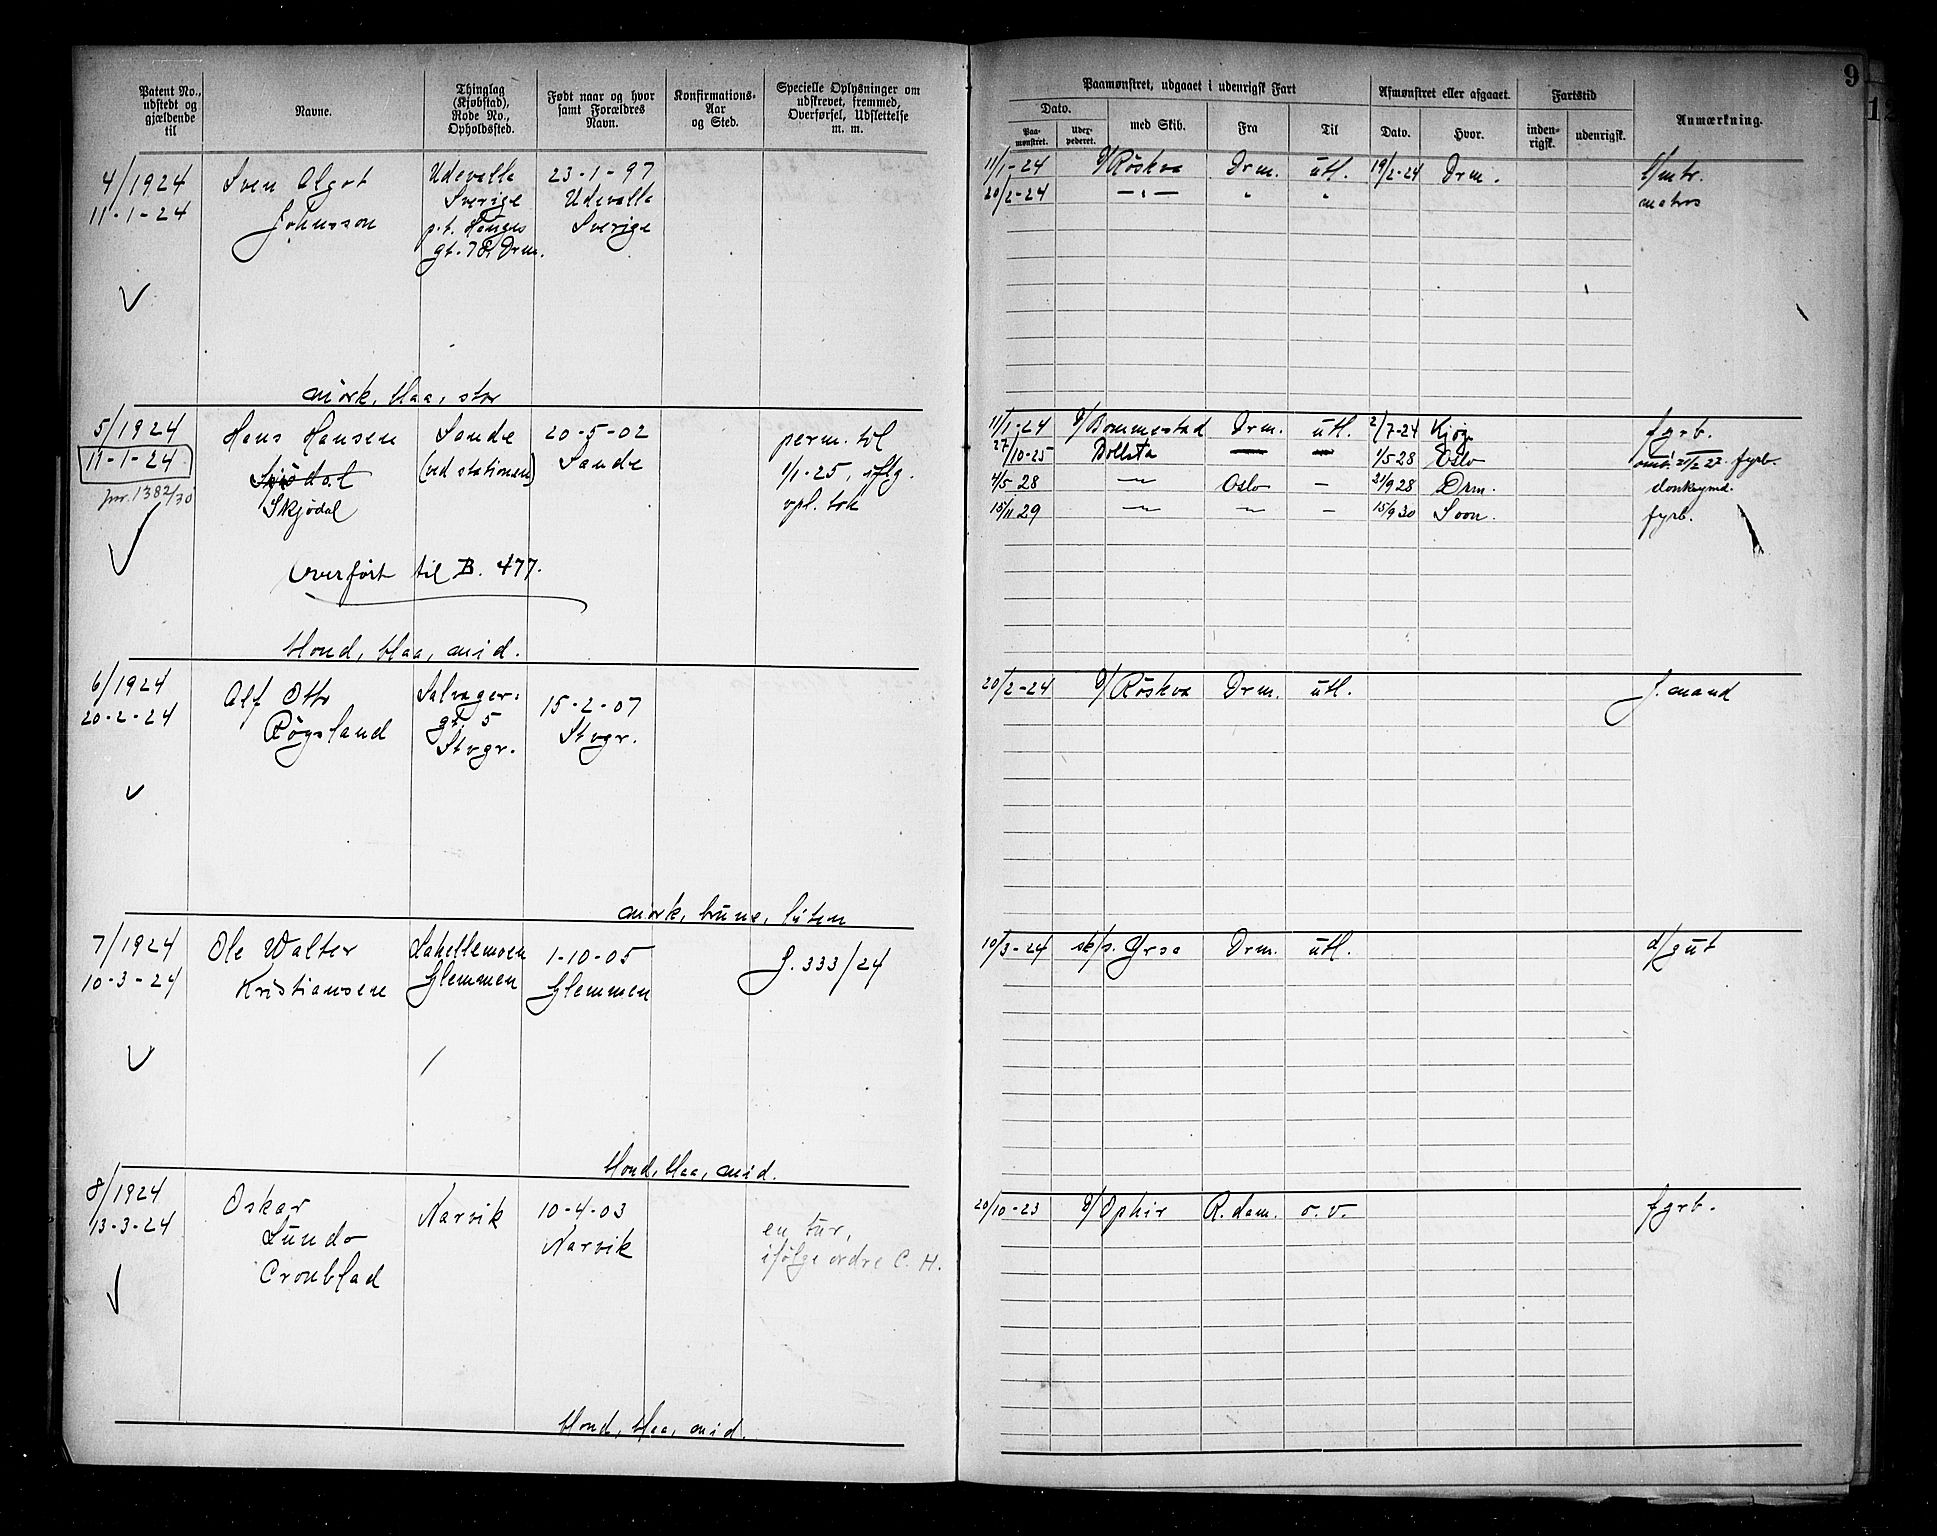 9
Patent No., udstedt og gjældende til
Navne.
Thinglag (Kjøbstad), Rode No., Opholdssted.
Født naar og hvor samt Forældres Navn.
Konfirmations-Aar og Sted.
Specielle Oplysninger om udskrevet, fremmed, Overførsel, Udslettelse m. m.
Paamønstret, udgaaet i udenrigsk Fart
Dato.
Paa-mønstret.
Uder-pederet.
med Skib.
Fra
Til
Afmønstret eller afgaaet.
Dato.
Hvor.
Fartstid
inden-rigsk.
udenrigsk.
Anmærkning.
4/1924 Sven Algot Udevalla 23-1-97
11-1-24 Johnsson Sverige Udevalla
p.t. Hauges Sverige
gt. 7 Drm.
mörk, blaa, stor
11/1-24 D/Röskva Drm. utl. 19/2-24 Drm. l/mtr.
20/2-24 — " — " " matros
5/1924 Hans Hansen Sande 20-5-02 perm. til
11-1-24 (ved stationen) Sande 1/1-25, iflg.
jnr. 1382/30 Skjødal opl. tok
Overført til B. 477.
blond, blaa, mid.
11/1-24 D/Bommestad Drm. utl. 2/7-24 Kjøge fyrb.
27/10-25 Dollsta — — 1/5 28 Oslo fyrb.
4/5 28 — Oslo — 21/9 28 Drm. donkeymd.
15/11 29 — — — 15/9 30 Soon. fyrb.
6/1924 Alf Otto Salvager- 15-2-07
20-2-24 Røgsland gt. 5 Stvgr.
Stvgr.
mörk, brune, liten
20/2-24 D/Röskva Drm. utl. J. mand
7/1924 Ole Walter Lahellemoen 1-10-05 J. 333/24
10-3-24 Kristiansen Glemmen Glemmen
blond, blaa, mid.
10/3-24 sk/s. Yrsa Drm. utl. d/gut
8/1924 Oskar Narvik 10-4-03 en tur,
13-3-24 Lundo Narvik ifølge ordre C. H.
Cronblad
blond, blaa, mid.
20/10-23 D/Ophir R.dam. o. v. fyrb.